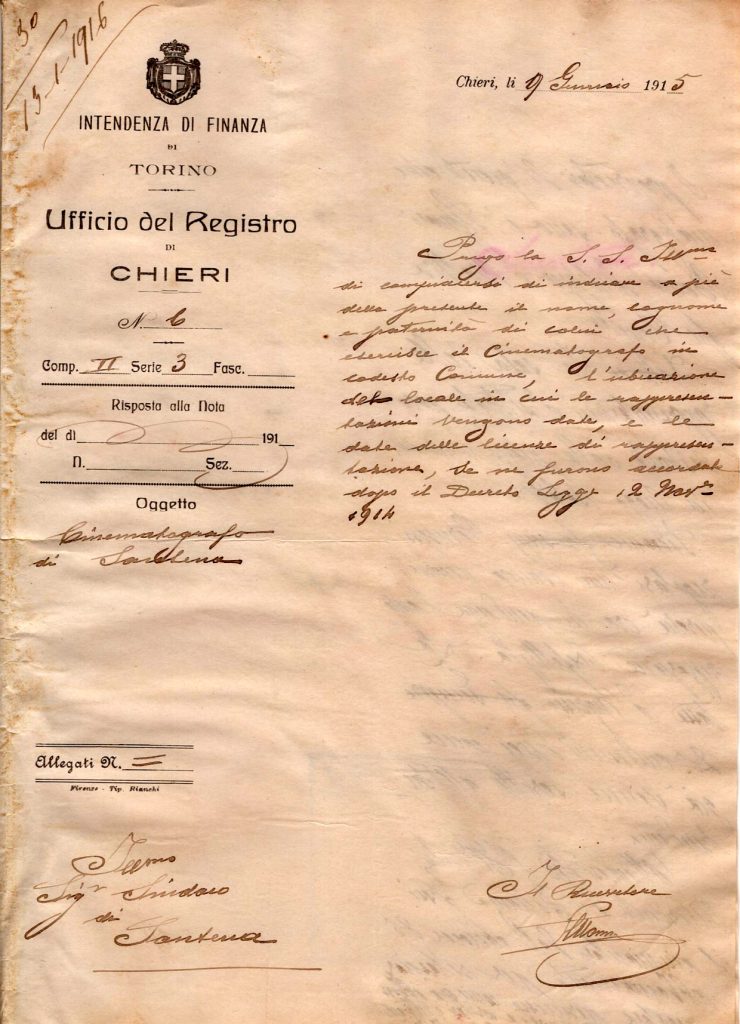 30
13-1-1916
INTENDENZA DI FINANZA
DI
TORINO
Ufficio del Registro
DI
CHIERI
N. 6
Comp. II Serie 3 Fasc.
Risposta alla Nota
del dì 191
N. Sez.
Oggetto
Cinematografo
di Santena
Allegati N. =
Firenze - Tip. Bianchi
Illmo
Sigr Sindaco
di
Santena
Chieri, li 9 Gennaio 1915
Prego la S. S. Illma
di compiacersi di indicare a piè
della presente il nome, cognome
e paternità di colui che
esercisce il Cinematografo in
codesto Comune, l'ubicazione
del locale in cui le rappresen-
tazioni vengono date, e le
date delle licenze di rappresen-
tazione, se ne furono accordate
dopo il Decreto Legge 12 Novre
1914
Il Ricevitore